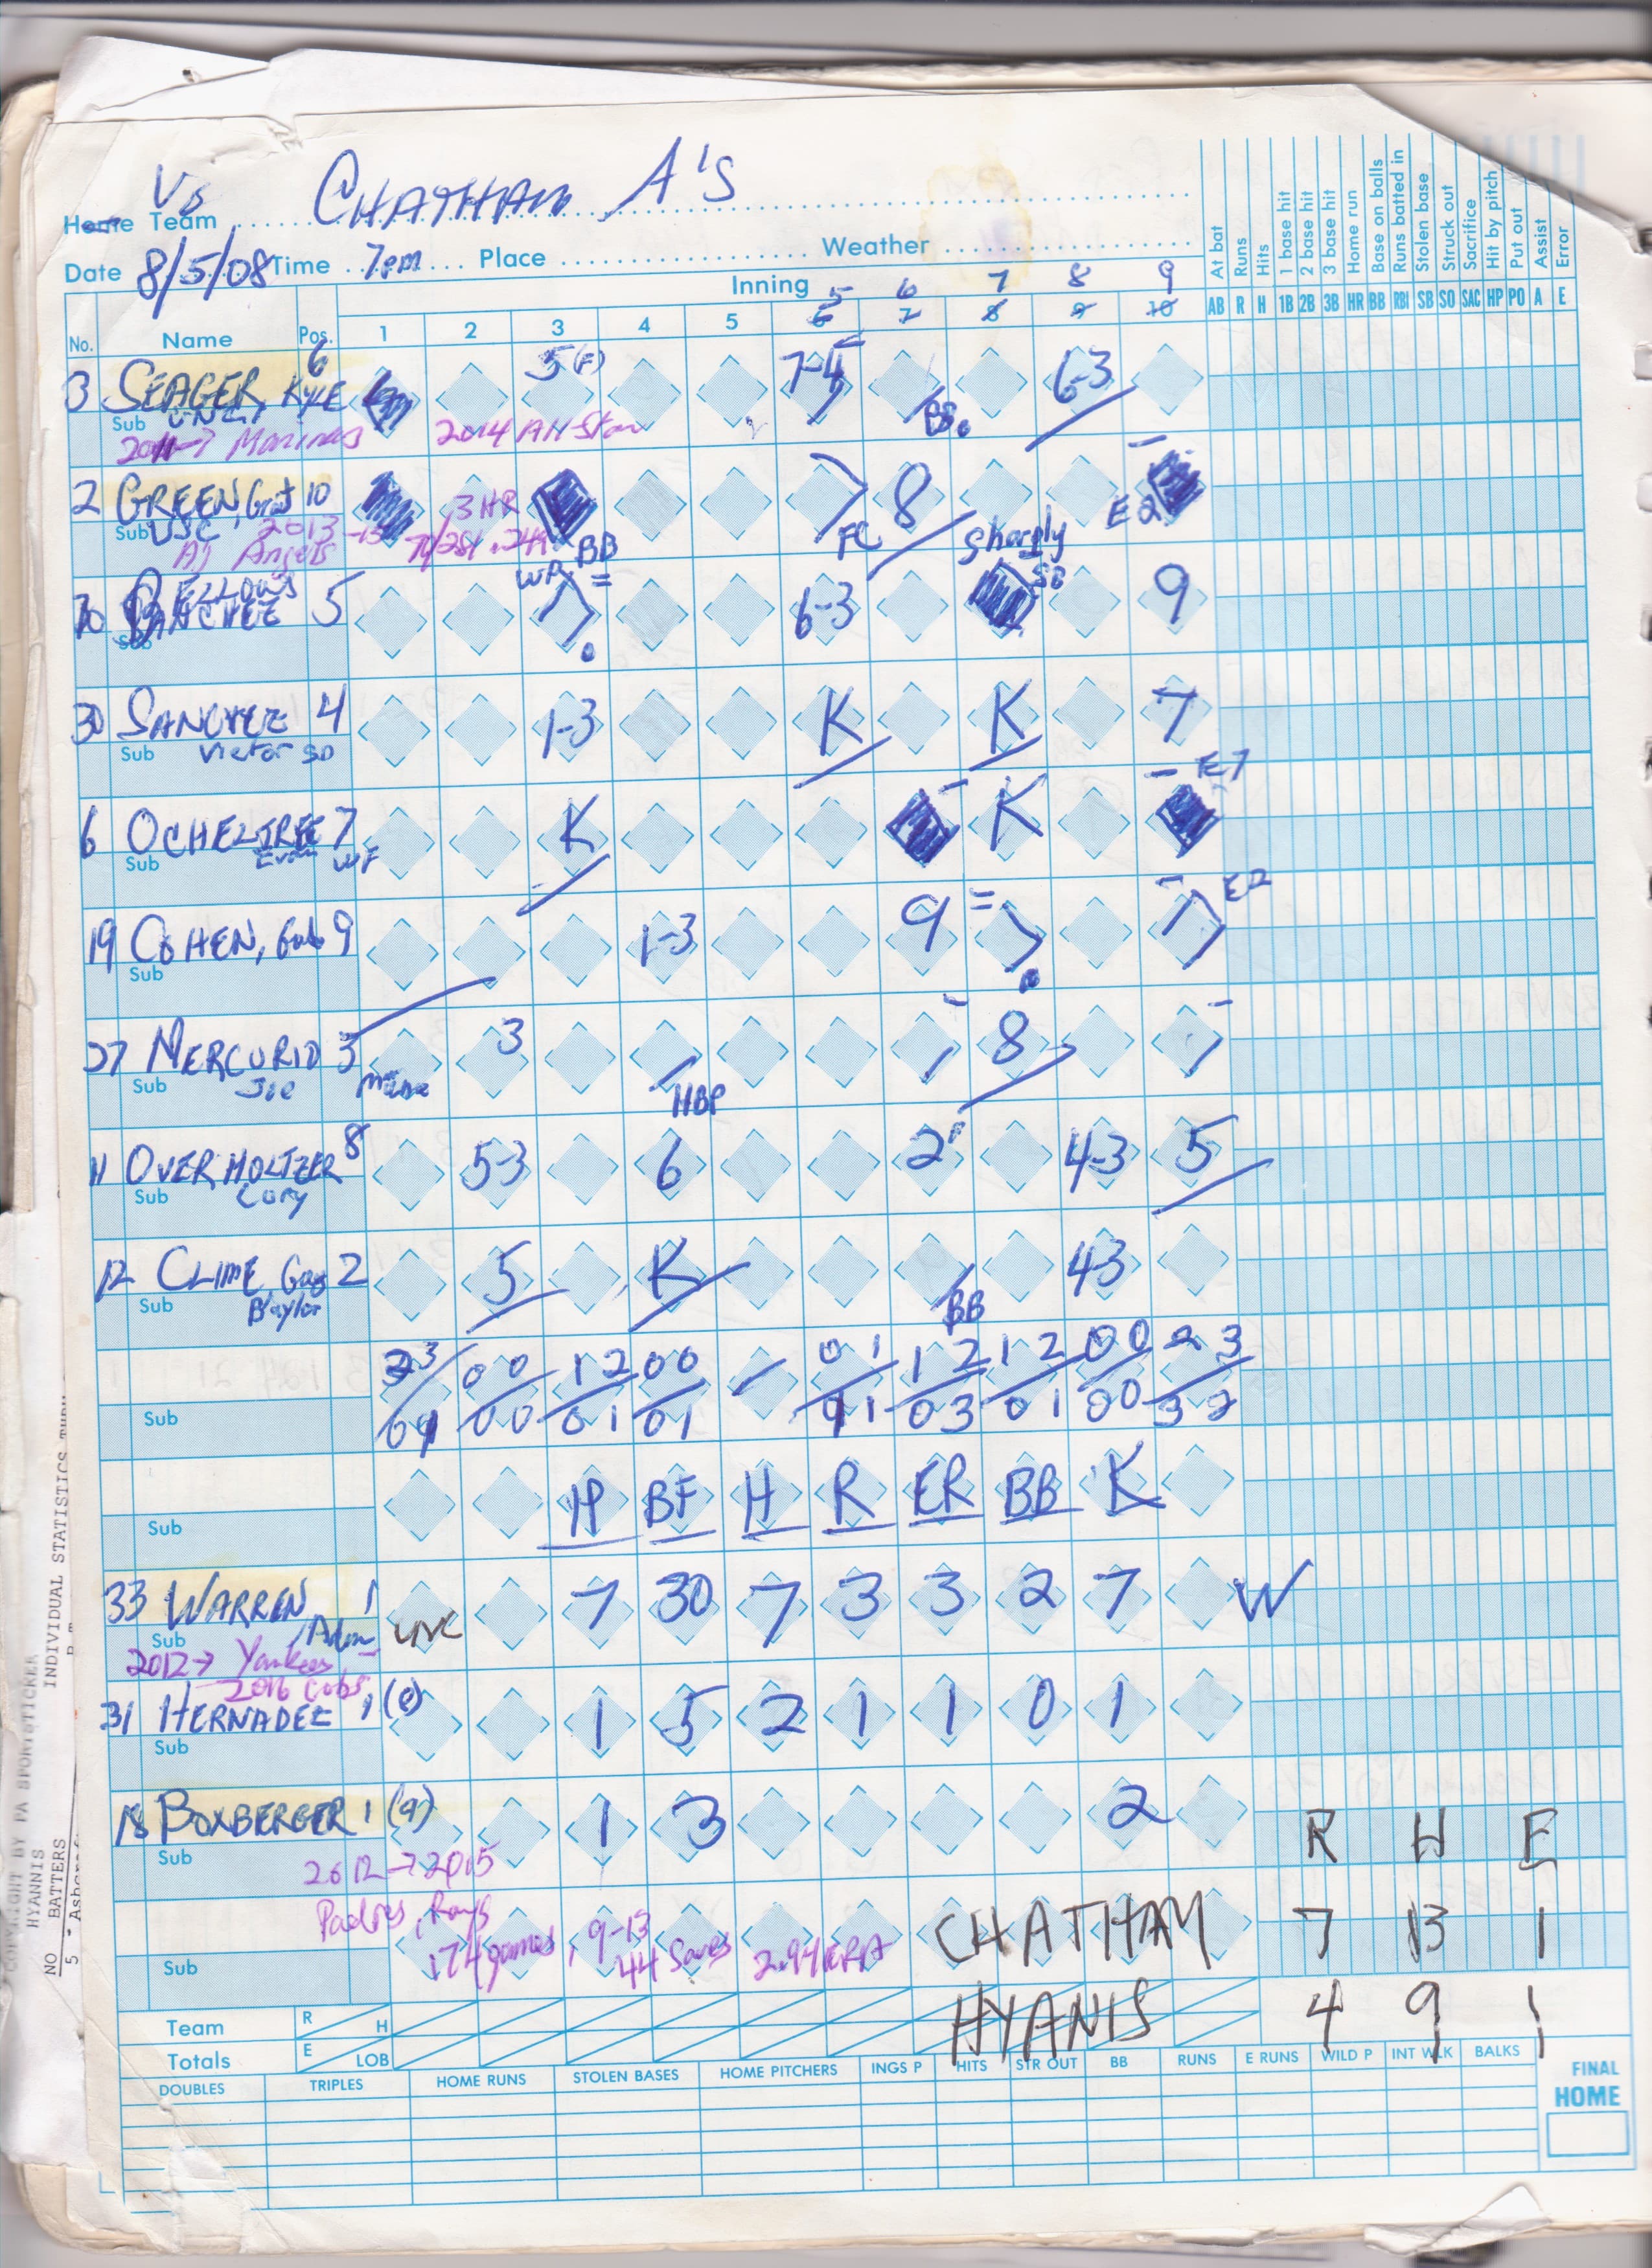 Vs CHATHAM A'S
Home Team
Date 8/5/08 Time 7pm Place Weather
Inning 5 6 7 8 9
No. Name Pos. 1 2 3 4 5 6 7 8 9 10
At bat Runs Hits 1 base hit 2 base hit 3 base hit Home run Base on balls Runs batted in Stolen base Struck out Sacrifice Hit by pitch Put out Assist Error
AB R H 1B 2B 3B HR BB RBI SB SO SAC HP PO A E
3 SEAGER KYLE 6 5(F) 7-4 BB 6-3
Sub UNC 2011→ Mariners 2014 All Star
2 GREEN, Grant 10 FC 8 E2
Sub USC 2013 -15 3 HR
A's Angels
70 BELLOWS 5 WP BB = 6-3 Sharply SB 9
Sub
30 SANCHEZ 4 1-3 K K 7
Sub Victor SD
6 OCHELTREE 7 K K E7
Sub Evan WF
19 COHEN, Gab 9 1-3 9 = E2
Sub
27 MERCURIO 3 3 8
Sub Joe HBP
11 OVERHOLTZER 8 5-3 6 2 4-3 5
Sub Cory
12 CLIME Gag 2 5 K BB 43
Sub Baylor
00 12 00 01 12 12 00 23
Sub 00 01 01 91 03 01 00 32
IP BF H R ER BB K
Sub
33 WARREN 1 UNC 7 30 7 3 3 2 7 W
Sub Adam
2012→ Yankees
2016 Cubs
31 HERNADEZ 1 (8) 1 5 2 1 1 0 1
Sub
18 BOXBERGER 1 (9) 1 3 2 R H E
Sub 2012→2015
Padres, Rays
174 games, 9-13
44 Saves 2.94 ERA CHATHAM 7 13 1
Sub
HYANIS 4 9 1
Team R H
Totals E LOB
DOUBLES TRIPLES HOME RUNS STOLEN BASES HOME PITCHERS INGS P HITS STR OUT BB RUNS E RUNS WILD P INT WLK BALKS FINAL
HOME
INDIVIDUAL STATISTICS
COPYRIGHT BY PA SPORTSTICKER
HYANNIS
NO BATTERS